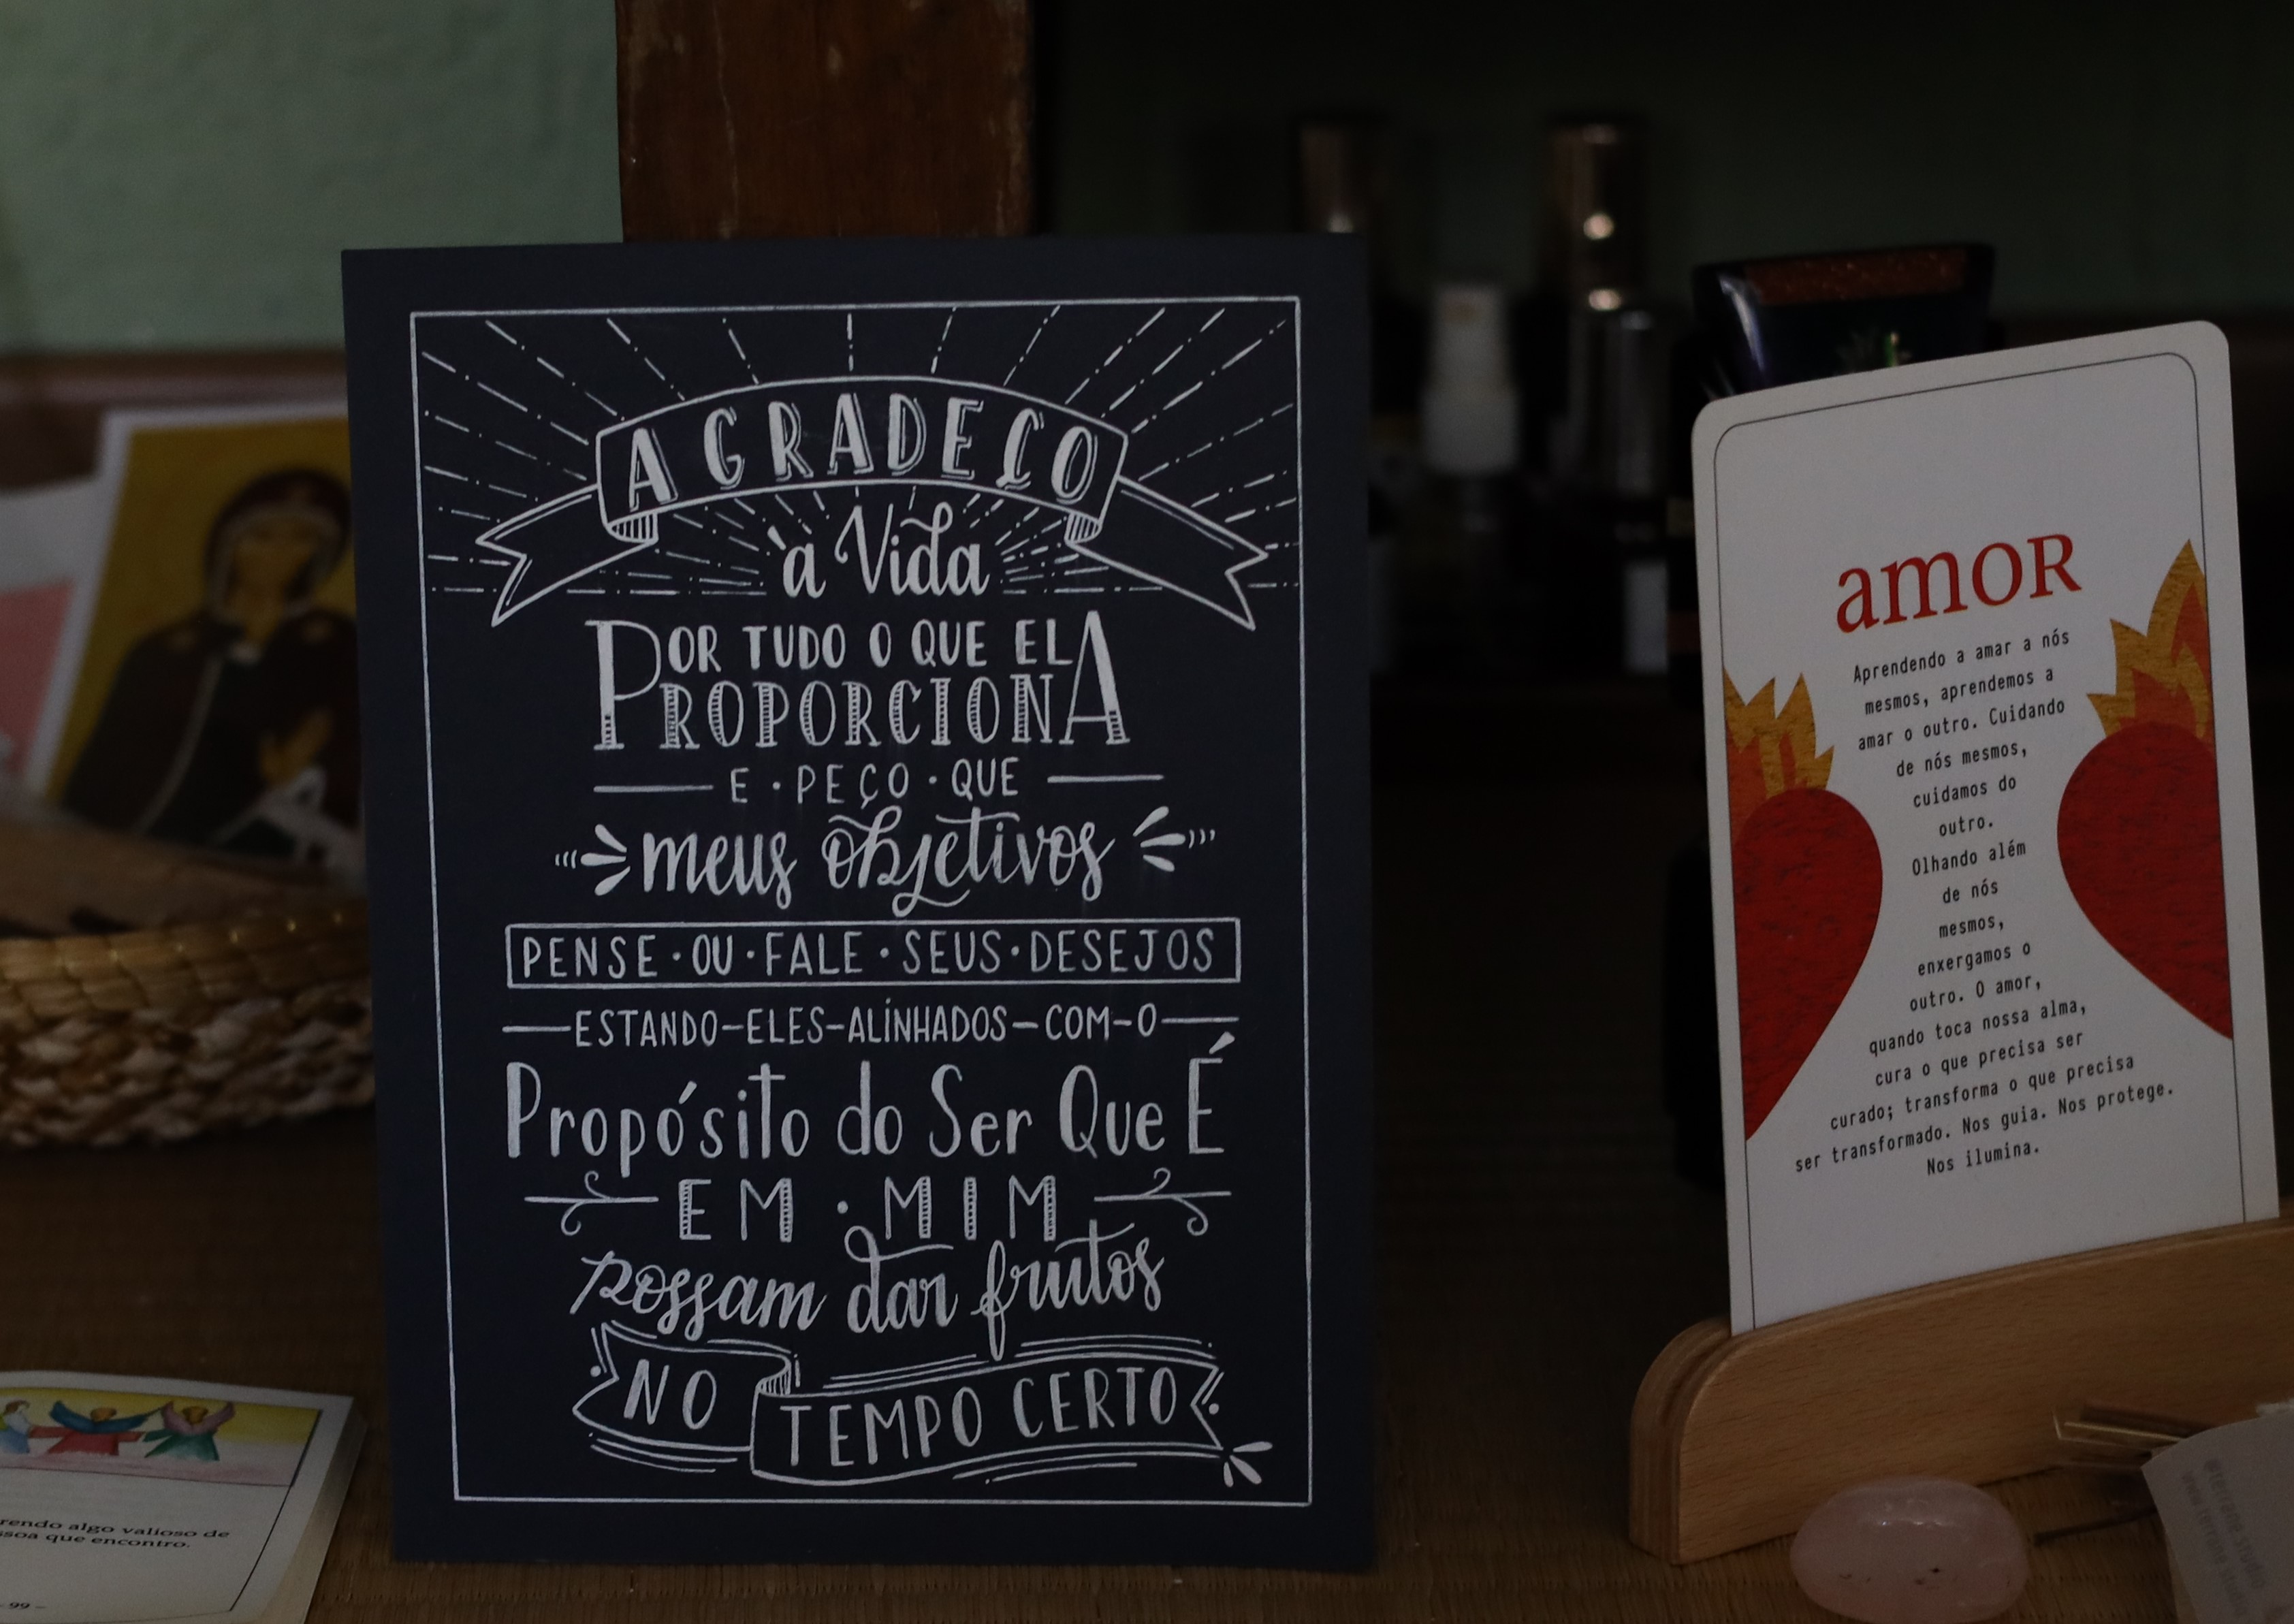 AGRADEÇO
à Vida
POR TUDO O QUE ELA
PROPORCIONA
E · PEÇO · QUE
meus objetivos
PENSE · OU · FALE · SEUS · DESEJOS
ESTANDO-ELES-ALÍNHADOS-COM-O
Propósito do Ser Que É
EM · MIM
possam dar frutos
NO TEMPO CERTO
amoR
Aprendendo a amar a nós
mesmos, aprendemos a
amar o outro. Cuidando
de nós mesmos,
cuidamos do
outro.
Olhando além
de nós
mesmos,
enxergamos o
outro. O amor,
quando toca nossa alma,
cura o que precisa ser
curado; transforma o que precisa
ser transformado. Nos guia. Nos protege.
Nos ilumina.
rendo algo valioso de
ssoa que encontro.
99 -